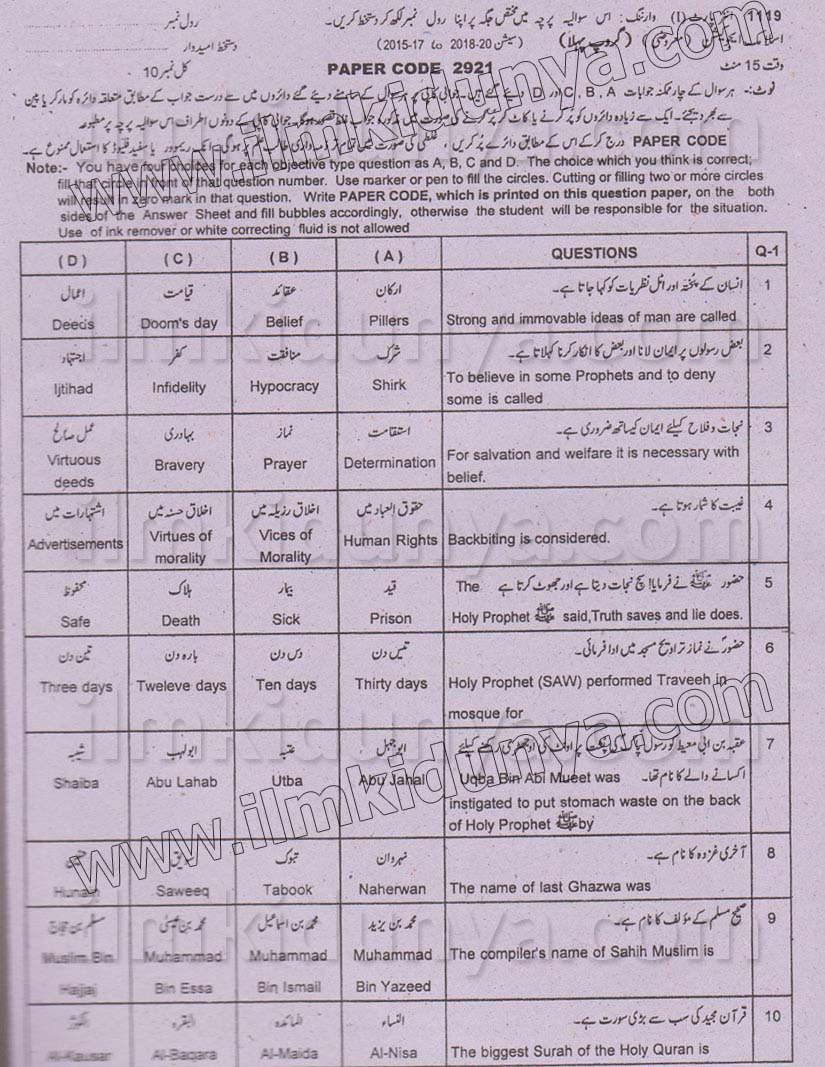 1119 وارننگ: اس سوالیہ پرچہ میں مختص جگہ پر اپنا رول نمبر لکھ کر دستخط کریں۔ رول نمبر
(گروپ پہلا) (سیشن 2015-17 to 2018-20) دستخط امیدوار
وقت 15 منٹ PAPER CODE 2921 کل نمبر 10
نوٹ:- ہر سوال کے چار ممکنہ جوابات A, B, C اور D دیئے گئے ہیں۔ جوابی کاپی پر ہر سوال کے سامنے دیئے گئے دائروں میں سے درست جواب کے مطابق متعلقہ دائرہ کو مارکر یا پین
سے بھر دیجئے۔ ایک سے زیادہ دائروں کو پر کرنے یا کاٹ کر پر کرنے کی صورت میں مذکورہ جواب غلط تصور ہوگا۔ جوابی کاپی کے دونوں اطراف اس سوالیہ پرچہ پر مطبوعہ
PAPER CODE درج کر کے اس کے مطابق دائرے پر کریں، غلطی کی صورت میں تمام تر ذمہ داری طالب علم پر ہوگی۔ انک ریموور یا سفید فلیوڈ کا استعمال ممنوع ہے۔
Note:- You have four choices for each objective type question as A, B, C and D. The choice which you think is correct;
fill that circle in front of that question number. Use marker or pen to fill the circles. Cutting or filling two or more circles
will result in zero mark in that question. Write PAPER CODE, which is printed on this question paper, on the both
sides of the Answer Sheet and fill bubbles accordingly, otherwise the student will be responsible for the situation.
Use of ink remover or white correcting fluid is not allowed
( D ) ( C ) ( B ) ( A ) QUESTIONS Q-1
اعمال قیامت عقائد ارکان انسان کے پختہ اور اٹل نظریات کو کہا جاتا ہے۔ 1
Deeds Doom's day Belief Pillers Strong and immovable ideas of man are called
اجتہاد کفر منافقت شرک بعض رسولوں پر ایمان لانا اور بعض کا انکار کرنا کہلاتا ہے۔ 2
Ijtihad Infidelity Hypocracy Shirk To believe in some Prophets and to deny
some is called
عمل صالح بہادری نماز استقامت نجات و فلاح کیلئے ایمان کیساتھ ضروری ہے۔ 3
Virtuous deeds Bravery Prayer Determination For salvation and welfare it is necessary with
belief.
اشتہارات میں اخلاق حسنہ میں اخلاق رزیلہ میں حقوق العباد میں غیبت کا شمار ہوتا ہے۔ 4
Advertisements Virtues of morality Vices of Morality Human Rights Backbiting is considered.
محفوظ ہلاک بیمار قید حضور ﷺ نے فرمایا! سچ نجات دیتا ہے اور جھوٹ کرتا ہے The 5
Safe Death Sick Prison Holy Prophet ﷺ said,Truth saves and lie does.
تین دن بارہ دن دس دن تیس دن حضورؐ نے نماز تراویح مسجد میں ادا فرمائی۔ 6
Three days Tweleve days Ten days Thirty days Holy Prophet (SAW) performed Traveeh in
mosque for
شیبہ ابولہب عتبہ ابوجہل عقبہ بن ابی معیط کو رسول پاکؐ کی پشت پر اونٹ کی اوجھڑی رکھنے کیلئے 7
Shaiba Abu Lahab Utba Abu Jahal اکسانے والے کا نام تھا۔ Uqba Bin Abi Mueet was
instigated to put stomach waste on the back
of Holy Prophet ﷺ by
حنین سویق تبوک نہروان آخری غزوہ کا نام ہے۔ 8
Hunain Saweeq Tabook Naherwan The name of last Ghazwa was
مسلم بن حجاج محمد بن عیسیٰ محمد بن اسماعیل محمد بن یزید صحیح مسلم کے مؤلف کا نام ہے۔ 9
Muslim Bin Hajjaj Muhammad Bin Essa Muhammad Bin Ismail Muhammad Bin Yazeed The compiler's name of Sahih Muslim is
الکوثر البقرہ المائدہ النساء قرآن مجید کی سب سے بڑی سورت ہے۔ 10
Al-Kausar Al-Baqara Al-Maida Al-Nisa The biggest Surah of the Holy Quran is
www.ilmkidunya.com
www.ilmkidunya.com
ilmkidunya.com
ilmkidunya.com
ilmkidunya.com
ilmkidunya.com